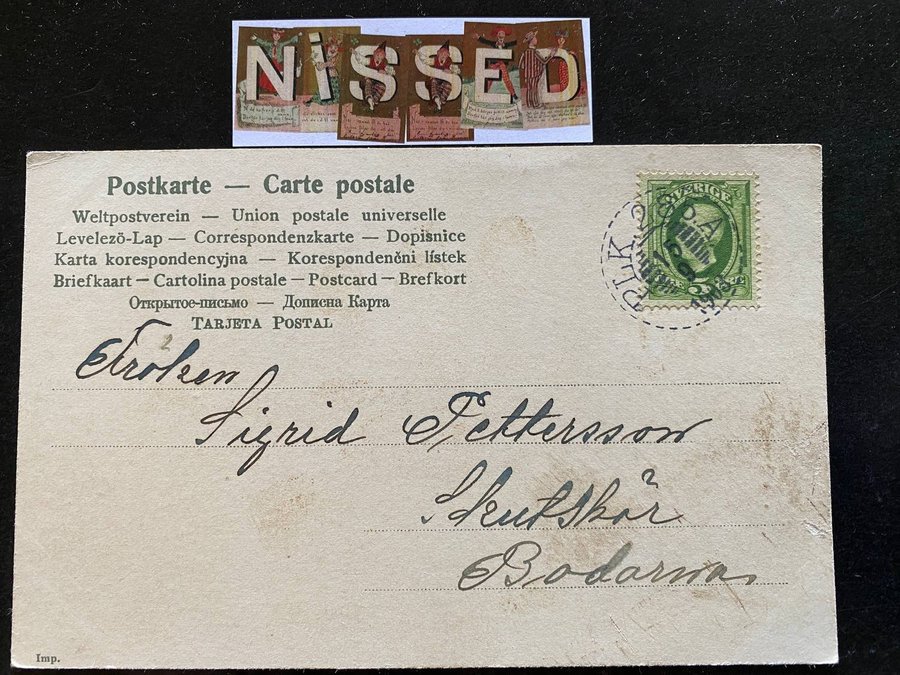 NiSSED
Postkarte — Carte postale
Weltpostverein — Union postale universelle
Levelező-Lap — Correspondenzkarte — Dopisnice
Karta korespondencyjna — Korespondenční lístek
Briefkaart — Cartolina postale — Postcard — Brefkort
Открытое-письмо — Дописна Карта
TARJETA POSTAL
SVERIGE
Fröken
Sigrid Pettersson
Skutskär
Bodarna
Imp.